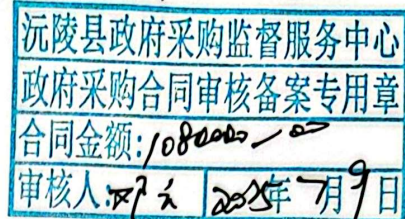 沅陵县政府采购监督服务中心
政府采购合同审核备案专用章
合同金额:1080000.00
审核人: 2025年7月9日